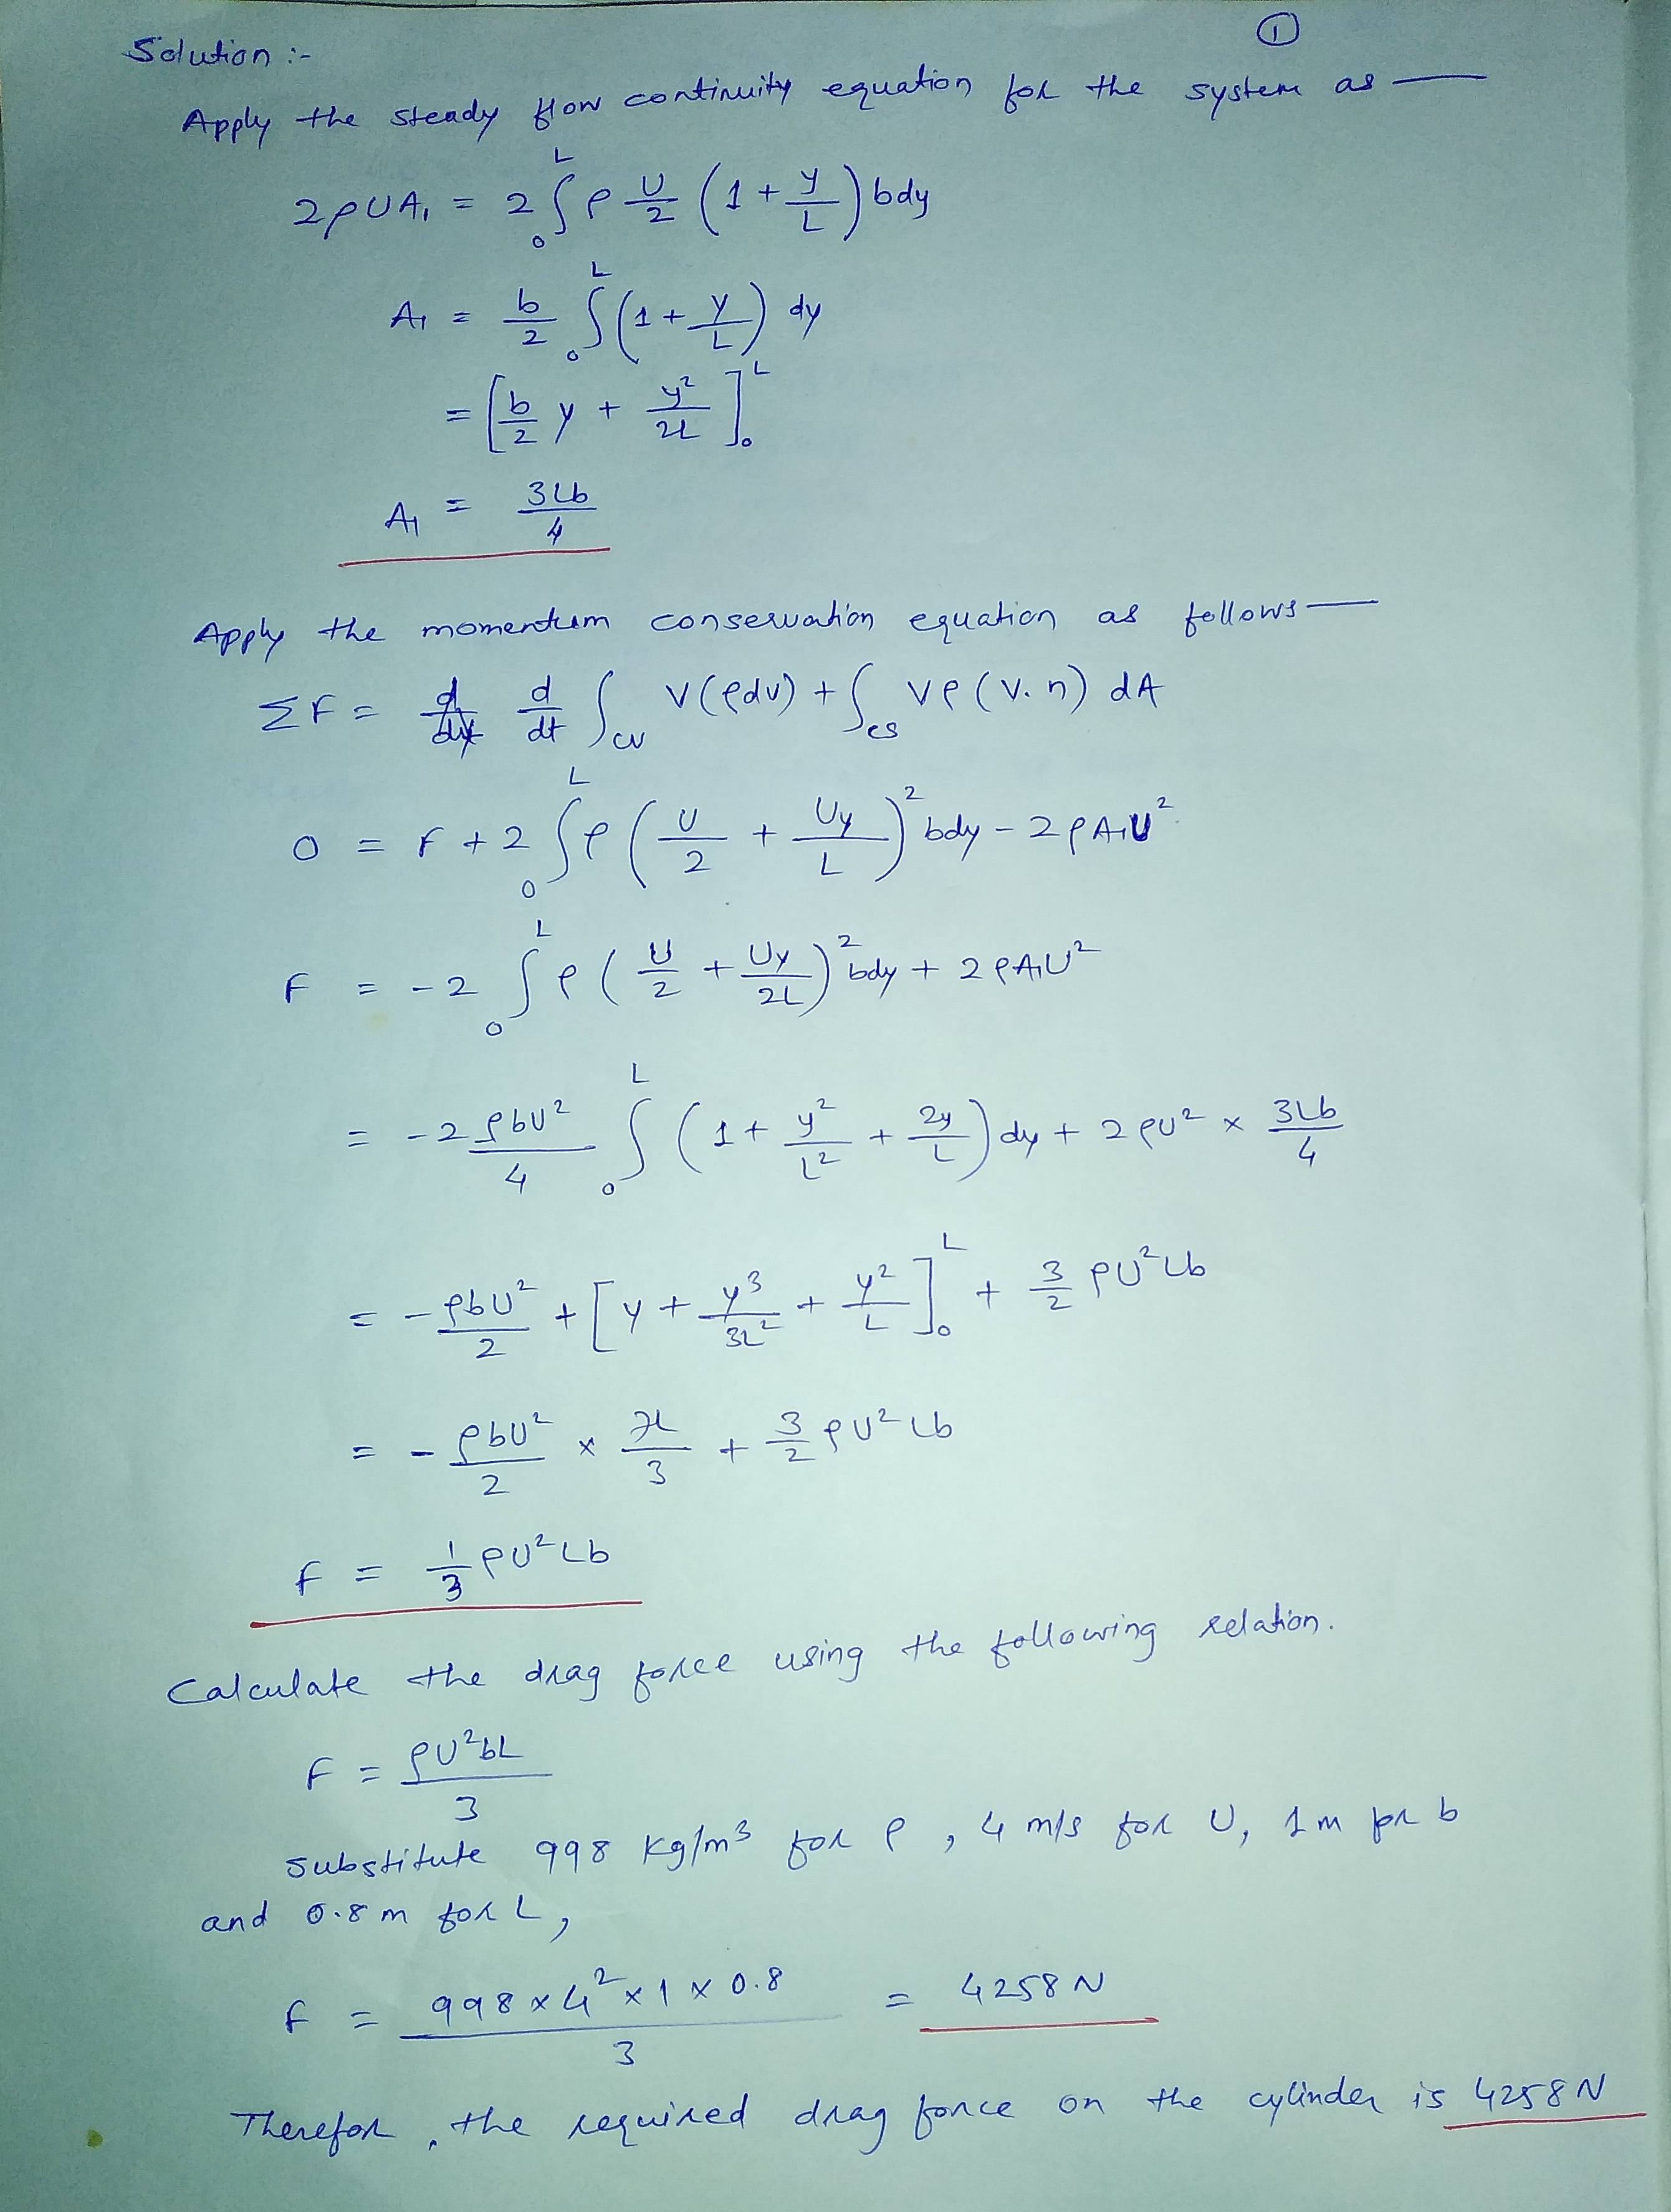 ①
Solution :-
Apply the steady flow continuity equation for the system as —
2ρUA₁ = 2 ∫₀ᴸ ρ U/2 (1 + y/L) bdy
A₁ = b/2 ∫₀ᴸ (1 + y/L) dy
= [b/2 y + y²/2L]₀ᴸ
A₁ = 3Lb/4
Apply the momentum conservation equation as follows —
ΣF = d/dt ∫cv V(ρdv) + ∫cs Vρ(V.n) dA
0 = F + 2 ∫₀ᴸ ρ (U/2 + Uy/L)² bdy - 2ρA₁U²
F = -2 ∫₀ᴸ ρ (U/2 + Uy/2L)² bdy + 2ρA₁U²
= -2 ρbU²/4 ∫₀ᴸ (1 + y²/L² + 2y/L) dy + 2ρU² × 3Lb/4
= -ρbU²/2 + [y + y³/3L² + y²/L]₀ᴸ + 3/2 ρU²Lb
= - ρbU²/2 × 7L/3 + 3/2 ρU²Lb
F = 1/3 ρU²Lb
Calculate the drag force using the following relation.
F = ρU²bL/3
Substitute 998 Kg/m³ for ρ, 4 m/s for U, 1m for b
and 0.8 m for L,
F = 998 × 4² × 1 × 0.8 / 3 = 4258 N
Therefor, the required drag force on the cylinder is 4258 N